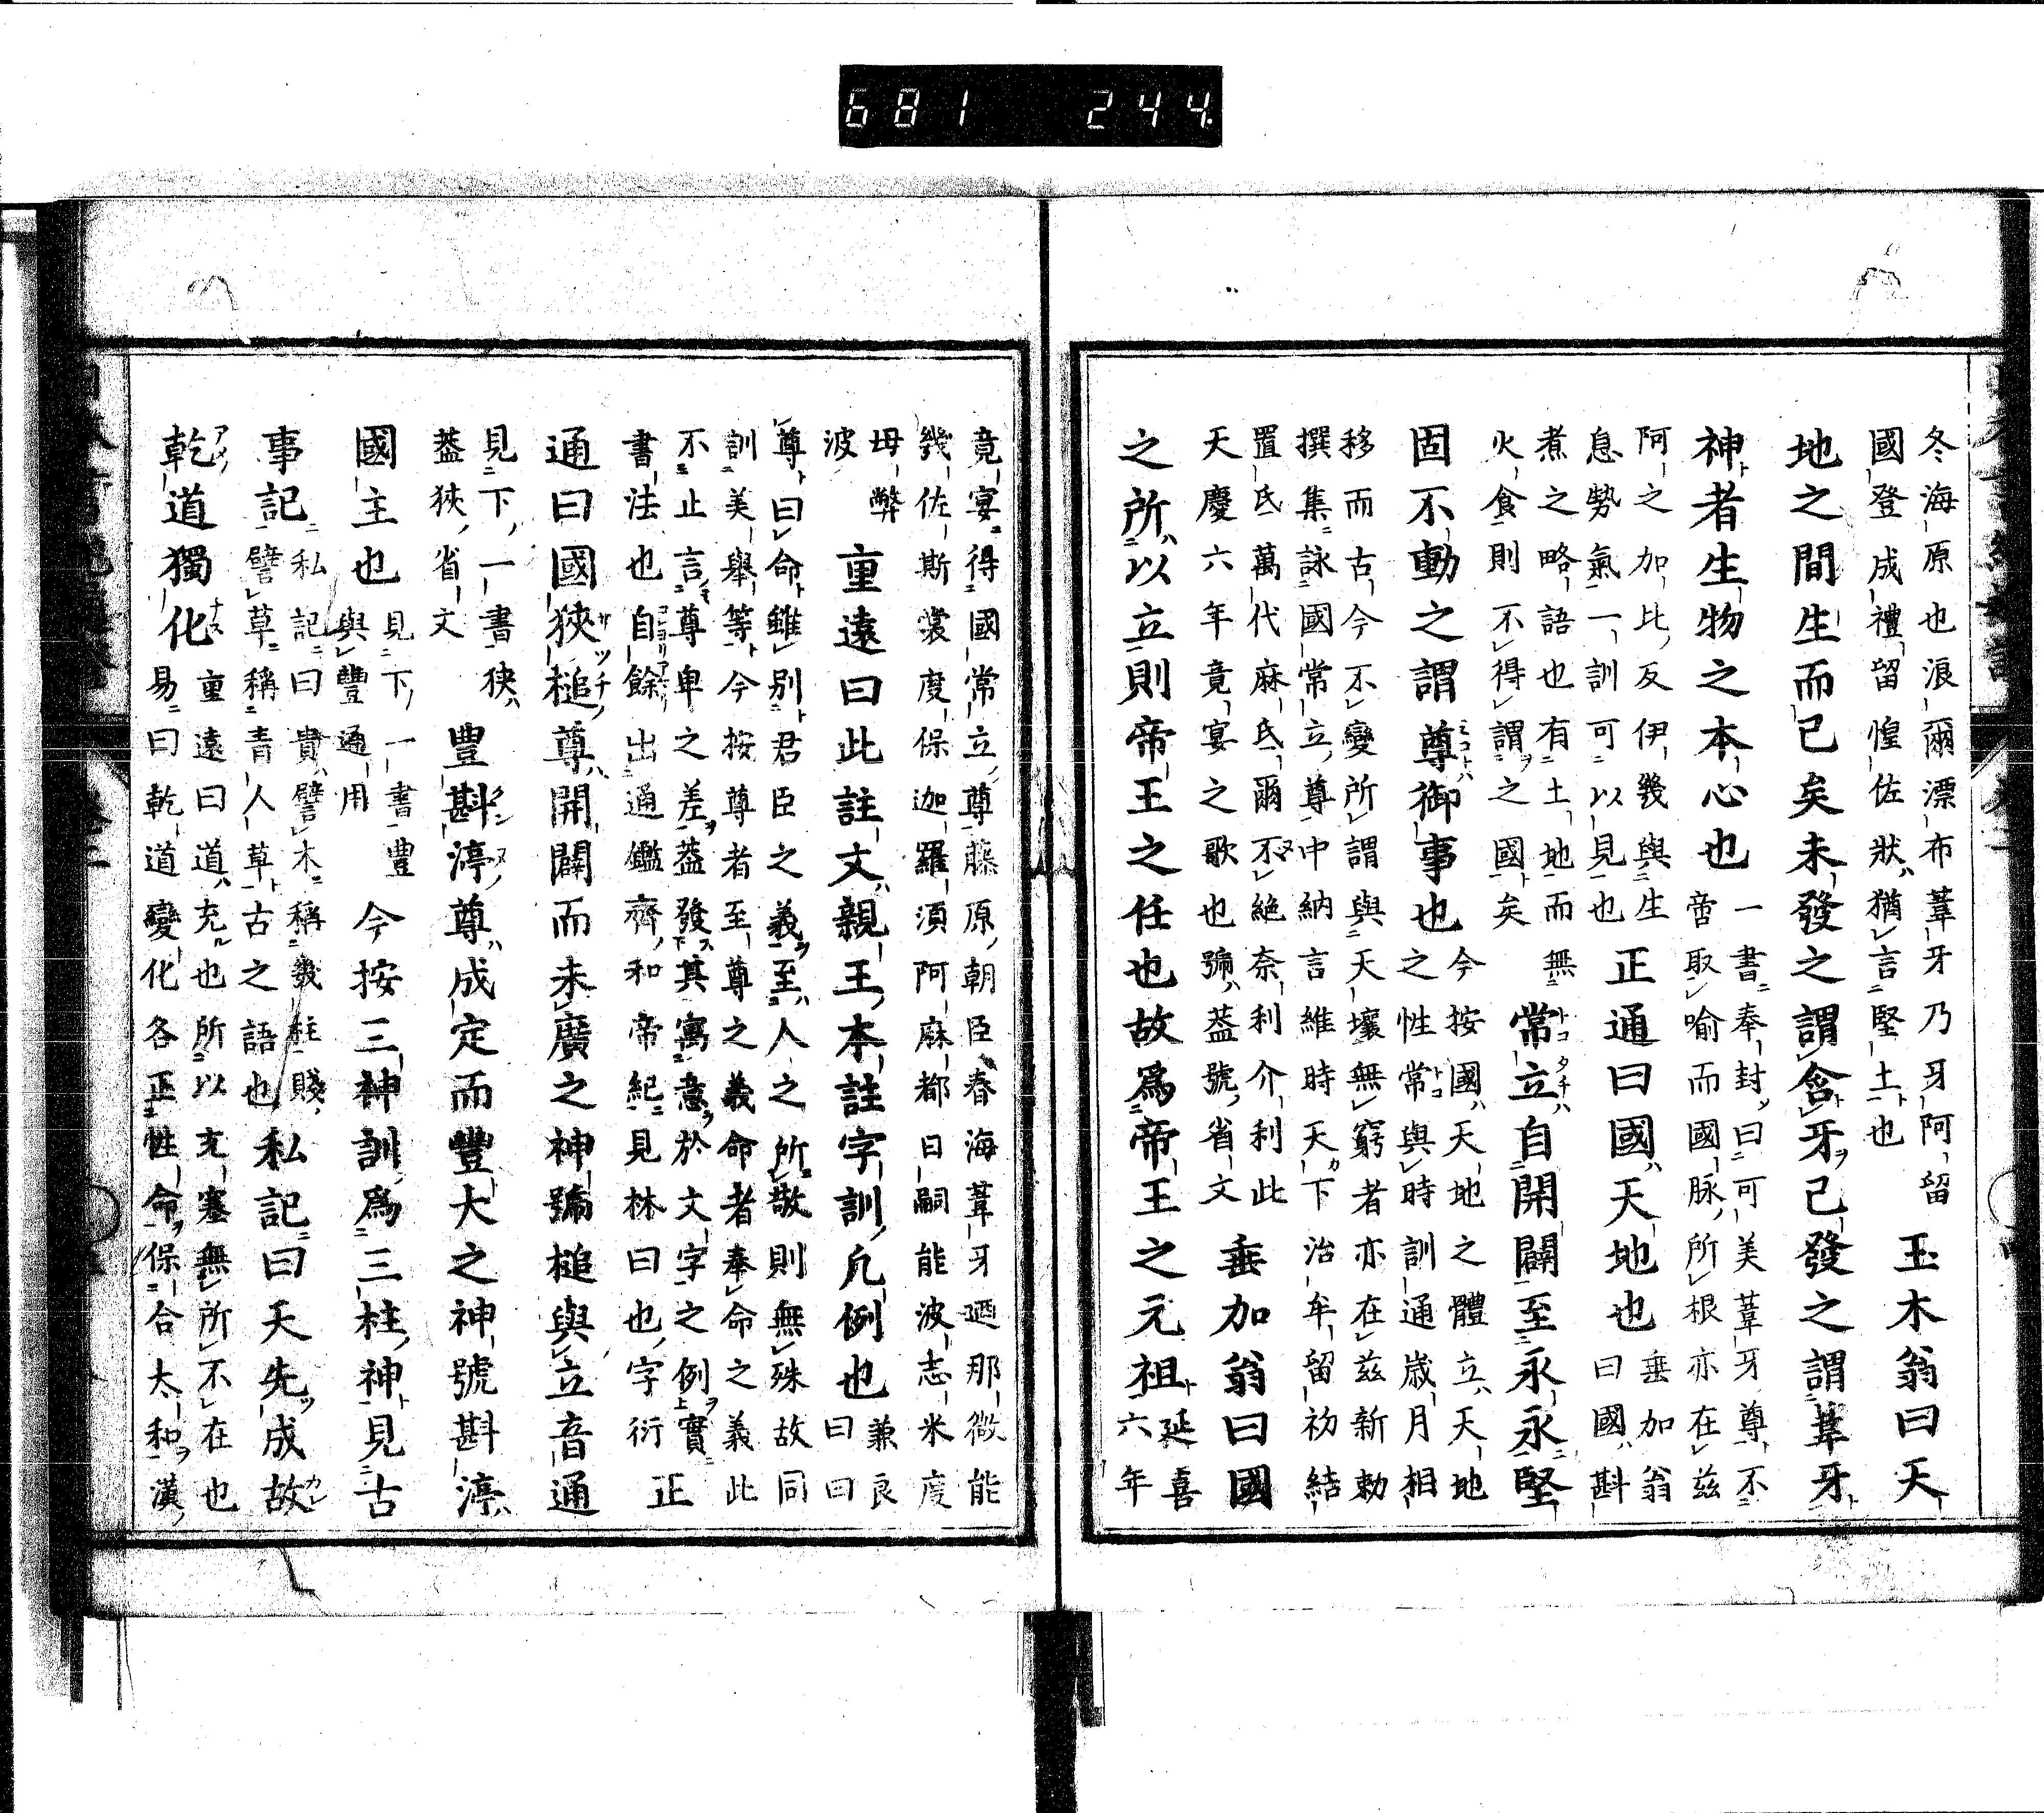 681 244
冬海原也浪爾漂布葦牙乃牙阿留
國登成禮留惶佐狀猶言堅土也
玉木翁曰天
地之間生而已矣未發之謂含牙已發之謂葦牙
神者生物之本心也
一書奉封曰可美葦牙尊不
啻取喻而國脉所根亦在茲
阿之加比反伊幾與生
息勢氣一訓可以見也
正通曰國天地也
垂加翁
曰國斟
煮之略語也有土地而無
火食則不得謂之國矣
常立自開闢至永永堅
固不動之謂尊御事也
今按國天地之體立天地
之性常與時訓通歲月相
移而古今不變所謂與天壤無窮者亦在茲新勅
撰集詠國常立尊中納言維時天下治牟留初結
置氏萬代麻氏爾不絶奈利介利此
天慶六年竟宴之歌也號蓋號省文
垂加翁曰國
之所以立則帝王之任也故爲帝王之元祖
延喜
六年
竟宴得國常立尊藤原朝臣春海葦牙廼那微能
幾佐斯裳度保迦羅須阿麻都日嗣能波志米度
毋弊
波
重遠曰此註文親王本註字訓凡例也
兼良
曰曰
尊曰命雖別君臣之義至人之所敬則無殊故同
訓美舉等今按尊者至尊之義命者奉命之義此
不止言尊卑之差蓋發其寓意於文字之例實
書法也自餘出通鑑齊和帝紀見林曰也字衍
正
通曰國狹槌尊開闢而未廣之神號槌與立音通
見下一書狹
蓋狹省文
豊斟渟尊成定而豐大之神號斟渟
國主也
見下一書豊
與豐通用
今按三神訓爲三柱神見古
事記
私記曰貴譬木稱幾柱賤
譬草稱青人草古之語也
私記曰天先成故
乾道獨化
重遠曰道充也所以充塞無所不在也
易曰乾道變化各正性命保合太和漢